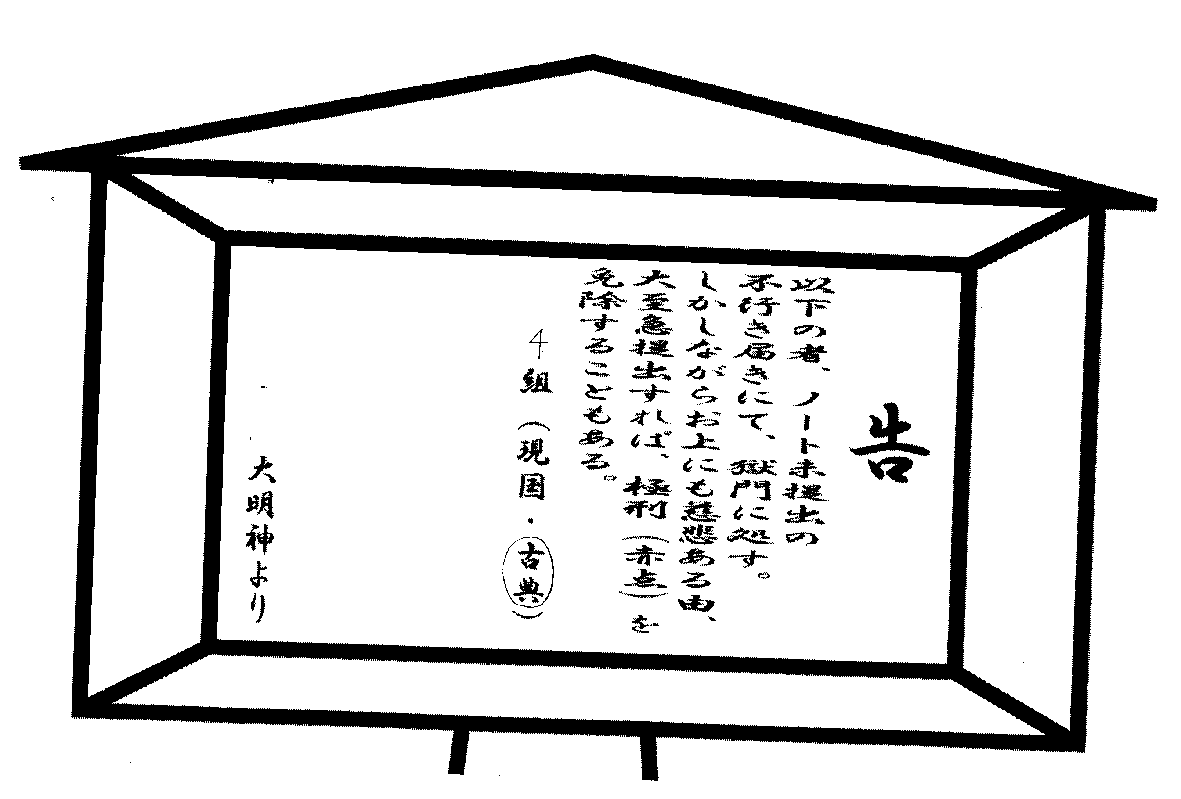 告
以下の者、ノート未提出の
不行き届きにて、獄門に処す。
しかしながらお上にも慈悲ある由、
大至急提出すれば、極刑（赤点）を
免除することもある。
４組（現国・古典）
大明神より